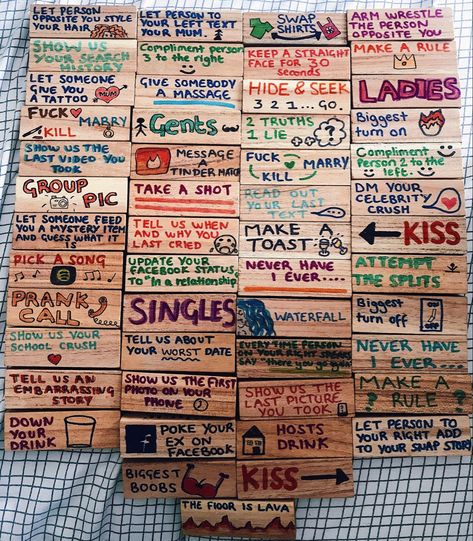 LET PERSON
OPPOSITE YOU STYLE
YOUR HAIR
SHOW US
YOUR SEARCH
HISTORY
LET SOMEONE
GIVE YOU
A TATTOO
MUM
FUCK MARRY
KILL
SHOW US THE
LAST VIDEO YOU
TOOK
GROUP
PIC
LET SOMEONE FEED
YOU A MYSTERY ITEM
AND GUESS WHAT IT IS
PICK A SONG
PRANK
CALL
SHOW US YOUR
SCHOOL CRUSH
TELL US AN
EMBARRASSING
STORY
DOWN
YOUR
DRINK
LET PERSON TO
YOUR LEFT TEXT
YOUR MUM.
Compliment person
3 to the right
GIVE SOMEBODY
A MASSAGE
Gents
MESSAGE
A
TINDER MATCH
TAKE A SHOT
TELL US WHEN
AND WHY YOU
LAST CRIED
UPDATE YOUR
FACEBOOK STATUS
TO "In a relationship"
SINGLES
TELL US ABOUT
YOUR WORST DATE
SHOW US THE FIRST
PHOTO ON YOUR
PHONE
POKE YOUR
EX ON
FACEBOOK
BIGGEST
BOOBS
SWAP
SHIRTS
KEEP A STRAIGHT
FACE FOR 30
seconds
HIDE & SEEK
3 2 1 ... GO.
2 TRUTHS
1 LIE
FUCK MARRY
KILL
READ OUT
YOUR LAST
TEXT
MAKE
A
TOAST
NEVER HAVE
I EVER....
WATERFALL
EVERY TIME PERSON
ON YOUR RIGHT SPEAKS
SAY "there you go again"
SHOW US THE
LAST PICTURE
YOU TOOK
HOSTS
DRINK
KISS
THE FLOOR IS LAVA
ARM WRESTLE
THE PERSON
OPPOSITE YOU
MAKE A RULE
LADIES
Biggest
turn on
Compliment
Person 2 to the
left.
DM YOUR
CELEBRITY
CRUSH
KISS
ATTEMPT
THE SPLITS
Biggest
turn off
NEVER HAVE
I EVER...
MAKE A
RULE
LET PERSON TO
YOUR RIGHT ADD
TO YOUR SNAP STORY